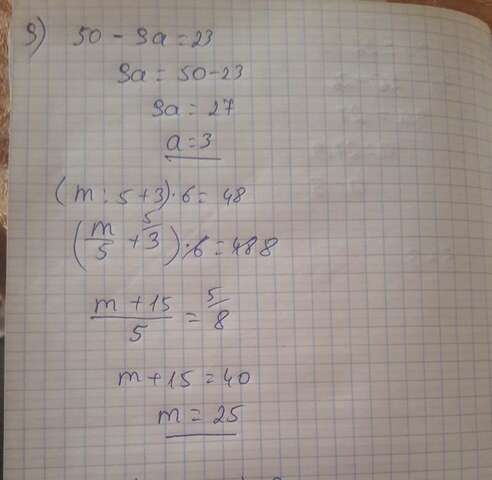 9) 50 - 9a = 23
9a = 50 - 23
9a = 27
a = 3
(m : 5 + 3) · 6 = 48
(m/5 + 3^5/) · 6 = 48 8
(m + 15)/5 = 5/8
m + 15 = 40
m = 25